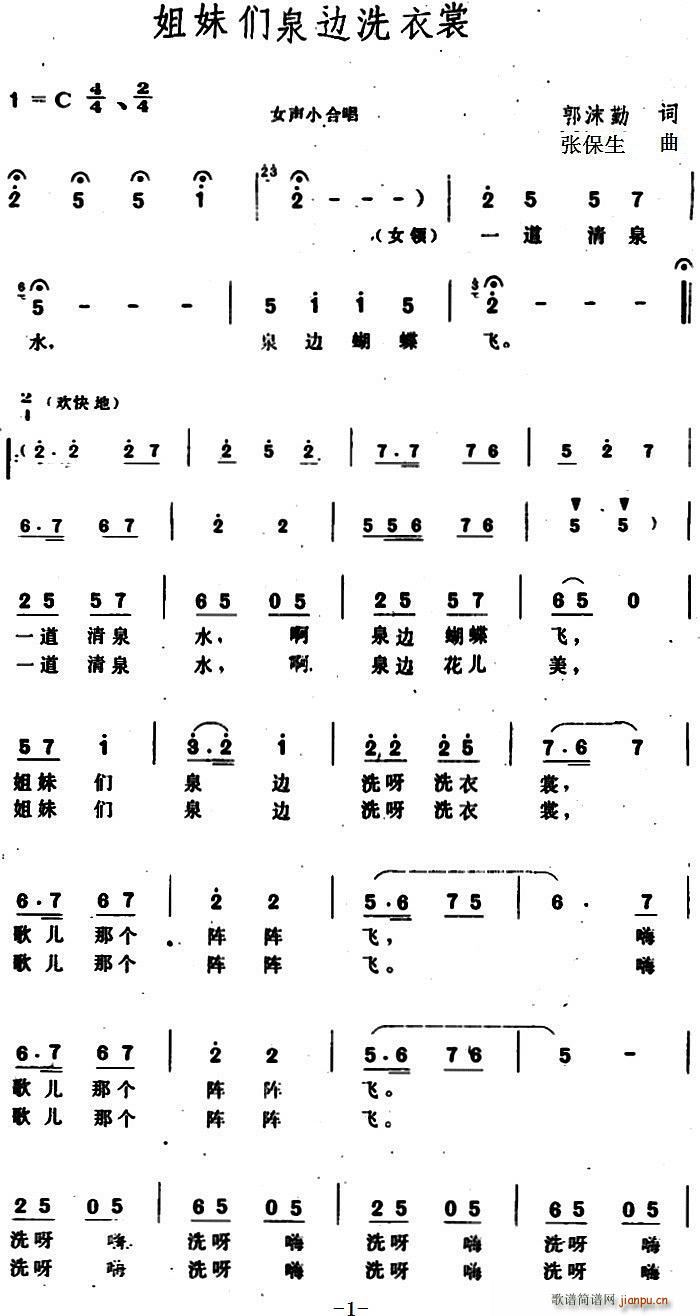 姐妹们泉边洗衣裳
1=C 4/4、2/4
女声小合唱
郭沫勤 词
张保生 曲
2 5 5 1 | 2 3 2 - - - ) | 2 5 5 7
(女领) 一道清泉
6 5 - - - | 5 1 1 5 | 3 2 - - - ‖
水, 泉边蝴蝶 飞。
2/4 (欢快地)
‖: (2·2 2 7 | 2 5 2 | 7·7 7 6 | 5 2 7 |
6·7 6 7 | 2 2 | 5 5 6 7 6 | 5 5 ) |
2 5 5 7 | 6 5 0 5 | 2 5 5 7 | 6 5 0 |
一道 清泉 水, 啊 泉边 蝴蝶 飞,
一道 清泉 水, 啊. 泉边 花儿 美,
5 7 1 | 3·2 1 | 2 2 2 5 | 7·6 7 |
姐妹 们 泉 边 洗呀 洗衣 裳,
姐妹 们 泉 边 洗呀 洗衣 裳,
6·7 6 7 | 2 2 | 5·6 7 5 | 6· 7 |
歌儿 那个 阵 阵 飞, 嗨
歌儿 那个 阵 阵 飞。 嗨
6·7 6 7 | 2 2 | 5·6 7 6 | 5 - |
歌儿 那个 阵 阵 飞。
歌儿 那个 阵 阵 飞。
2 5 0 5 | 6 5 0 5 | 2 5 0 5 | 6 5 0 5 |
洗呀 嗨 洗呀 嗨 洗呀 嗨 洗呀 嗨
洗呀 嗨 洗呀 嗨 洗呀 嗨 洗呀 嗨
-1-
歌谱简谱网
jianpu.cn